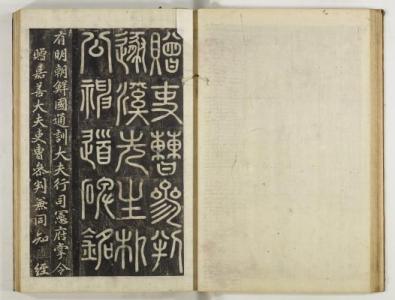 贈吏曹參判
遯溪先生朴
公神道碑銘
有明朝鮮國通訓大夫行司憲府掌令
贈嘉善大夫吏曹參判兼同知經